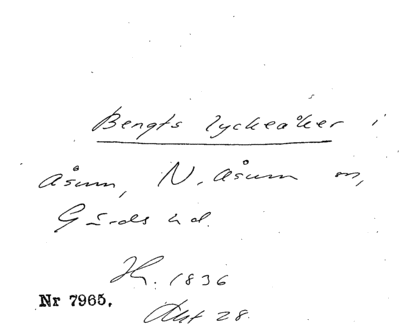 Bengts lyckeåker i
Åsum, N. Åsum sn,
Gärds hd.
1836
Nr 7965.
Akt 28.